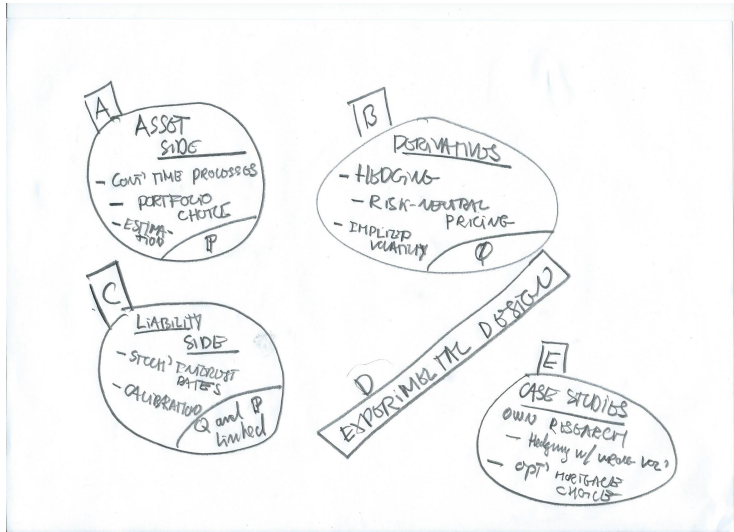 A
ASSET
SIDE
- CONT' TIME PROCESSES
- PORTFOLIO
CHOICE
- ESTIMA-
TION
P
B
DERIVATIVES
- HEDGING
- RISK-NEUTRAL
PRICING
- IMPLIED
VOLATILITY
Q
C
LIABILITY
SIDE
- STOCH' INTEREST
RATES
- CALIBRATION
Q and P
linked
D
EXPERIMENTAL DESIGN
E
CASE STUDIES
OWN RESEARCH
- Hedging w/ wrong vol'
- OPT' MORTGAGE
CHOICE